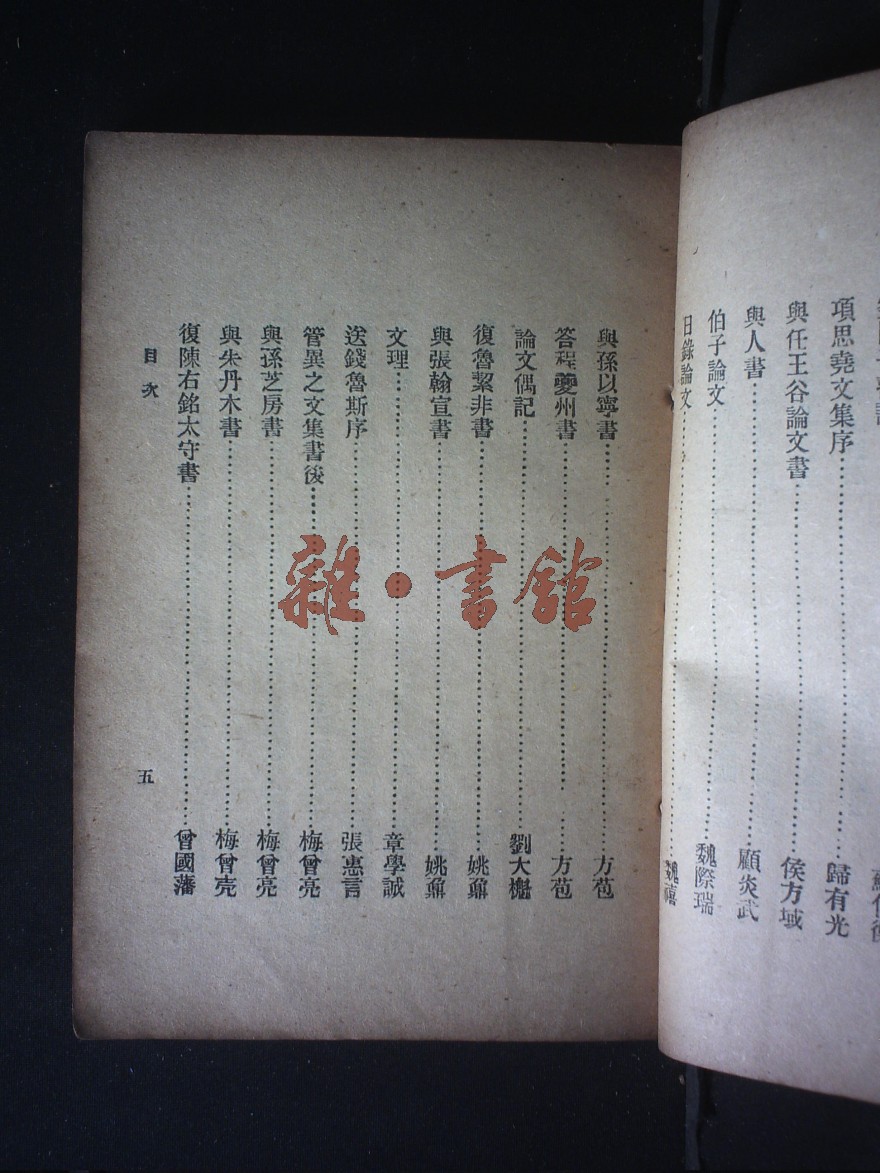 項思堯文集序……歸有光
與任王谷論文書……侯方域
與人書……顧炎武
伯子論文……魏際瑞
日錄論文……魏禧
與孫以寧書……方苞
答程夔州書……方苞
論文偶記……劉大櫆
復魯絜非書……姚鼐
與張翰宣書……姚鼐
文理……章學誠
送錢魯斯序……張惠言
管異之文集書後……梅曾亮
與孫芝房書……梅曾亮
與朱丹木書……梅曾亮
復陳右銘太守書……曾國藩
目次
五
雜·書館